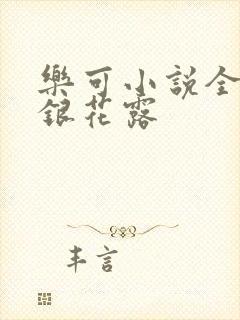 樂可小說全
銀花露
丰言